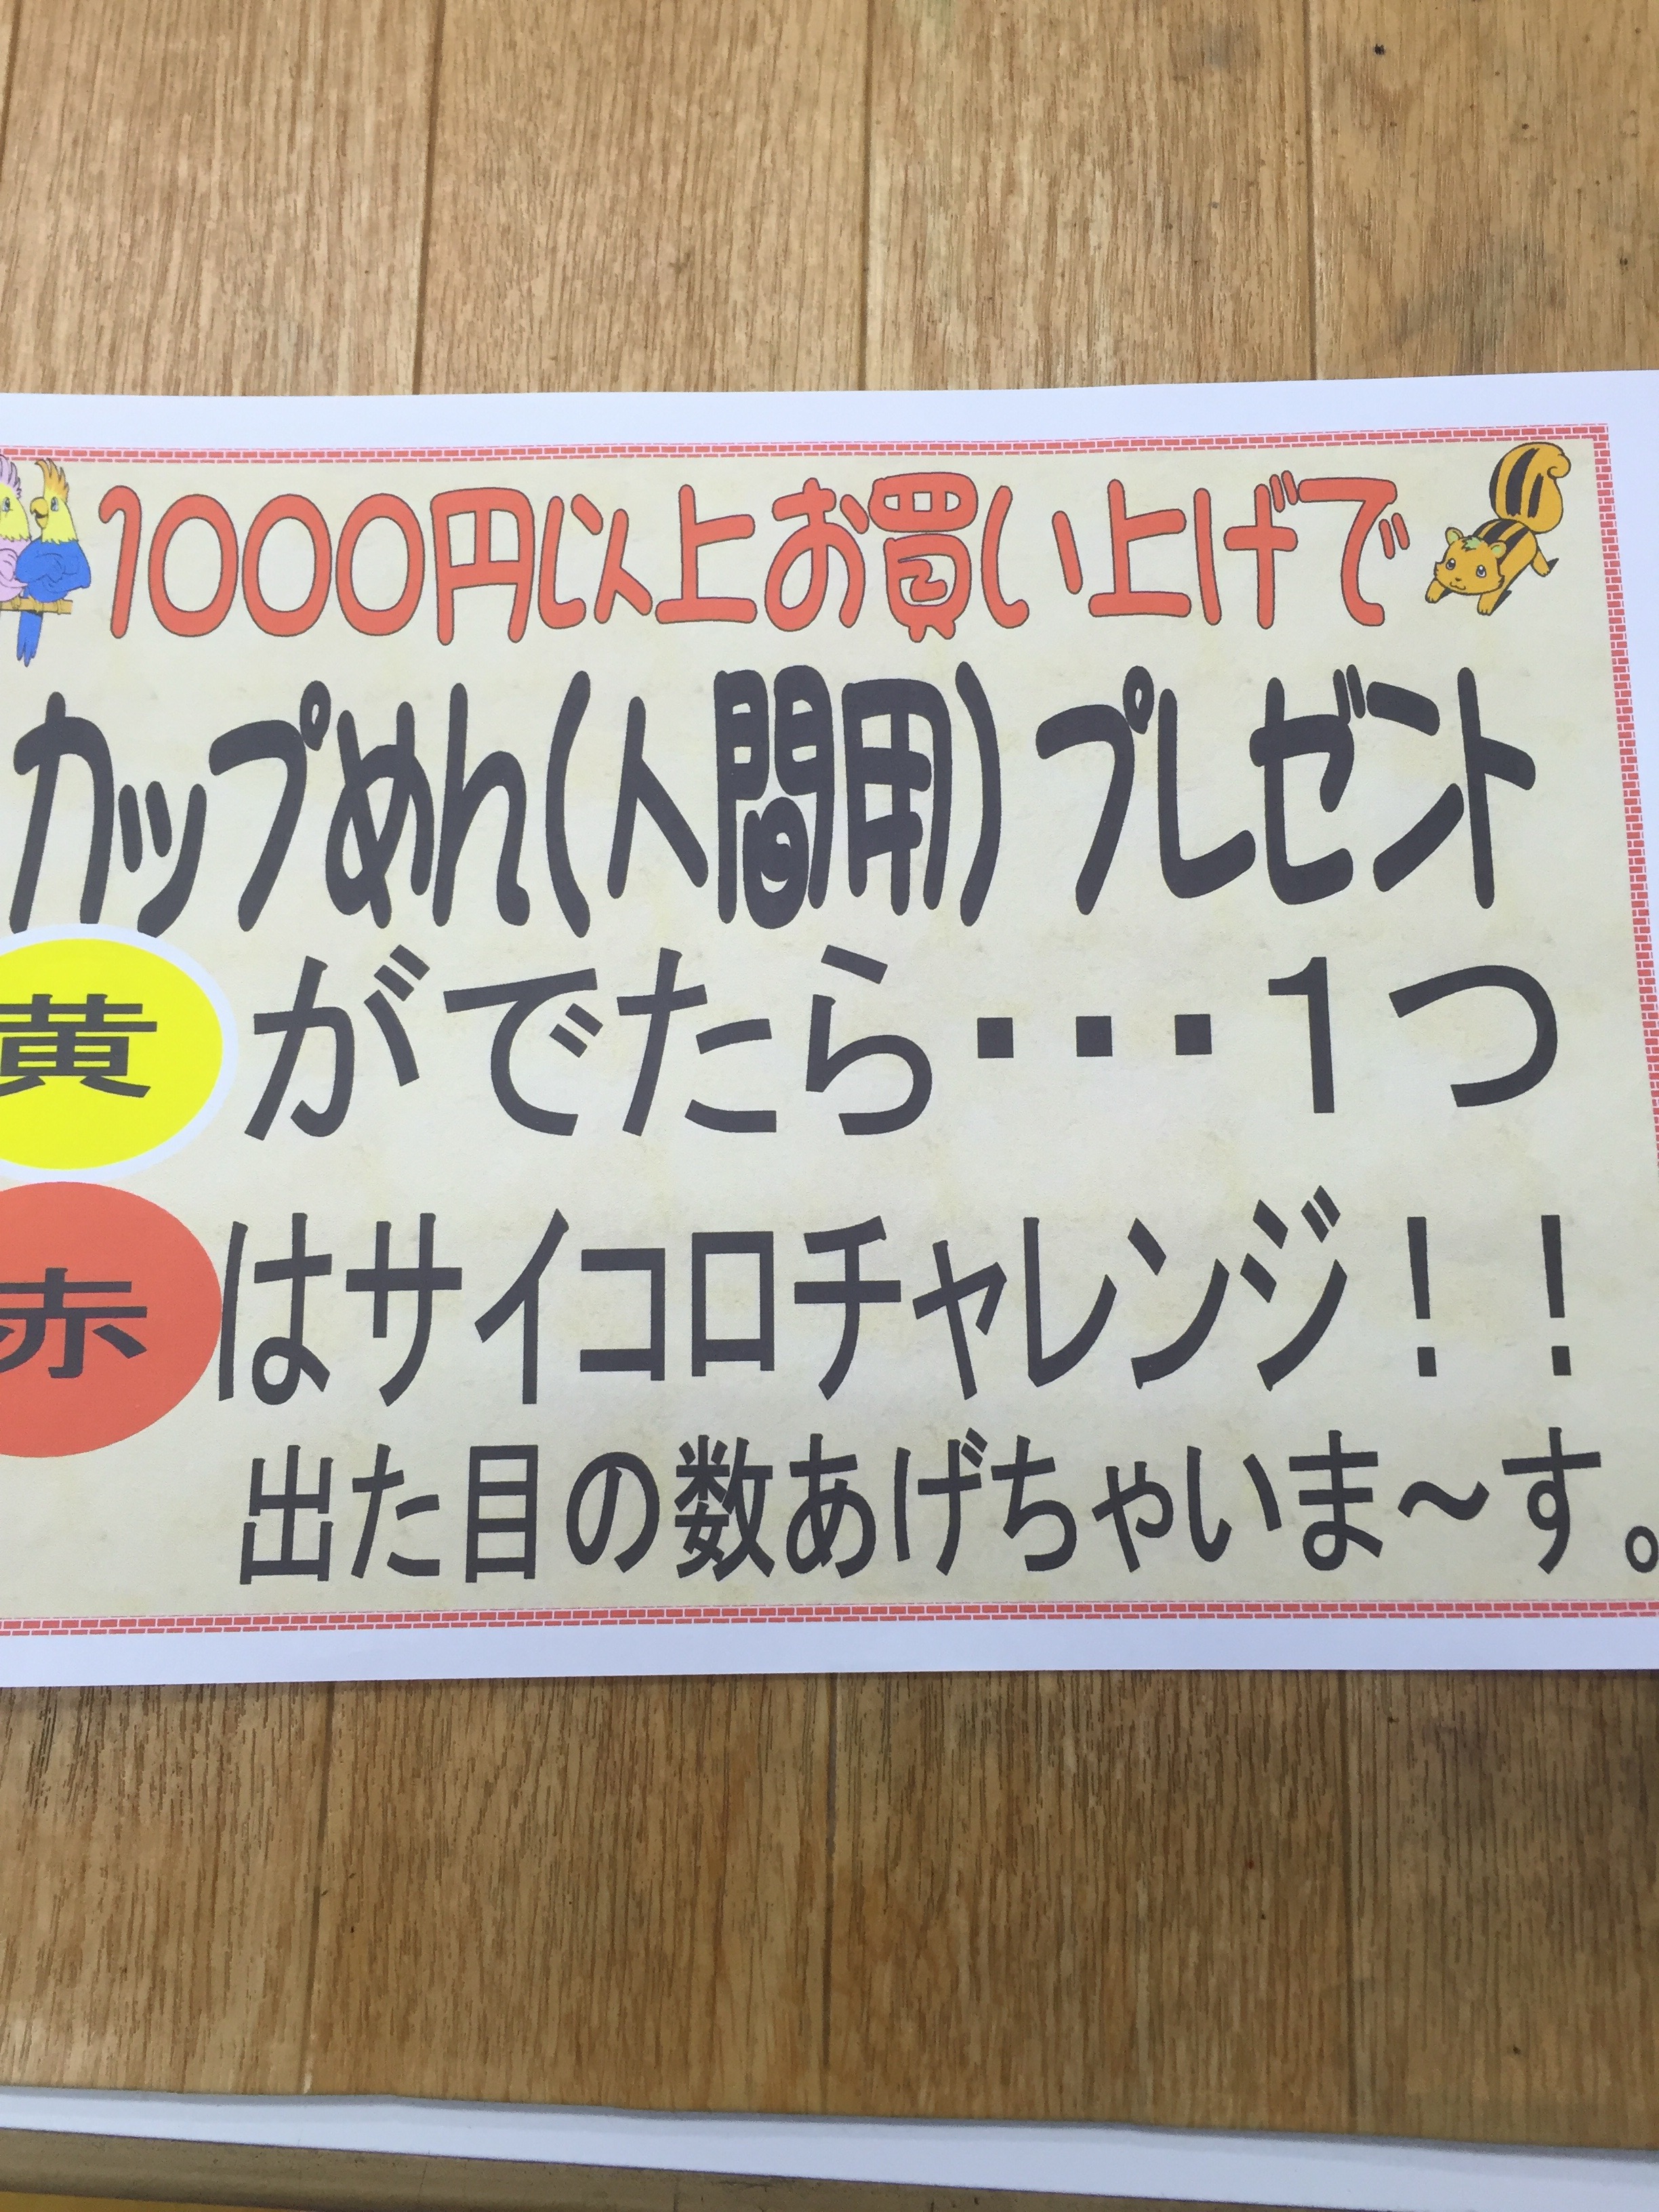 1000円以上お買い上げで
カップめん(人間用)プレゼント
黄がでたら・・・1つ
赤はサイコロチャレンジ！！
出た目の数あげちゃいま〜す。